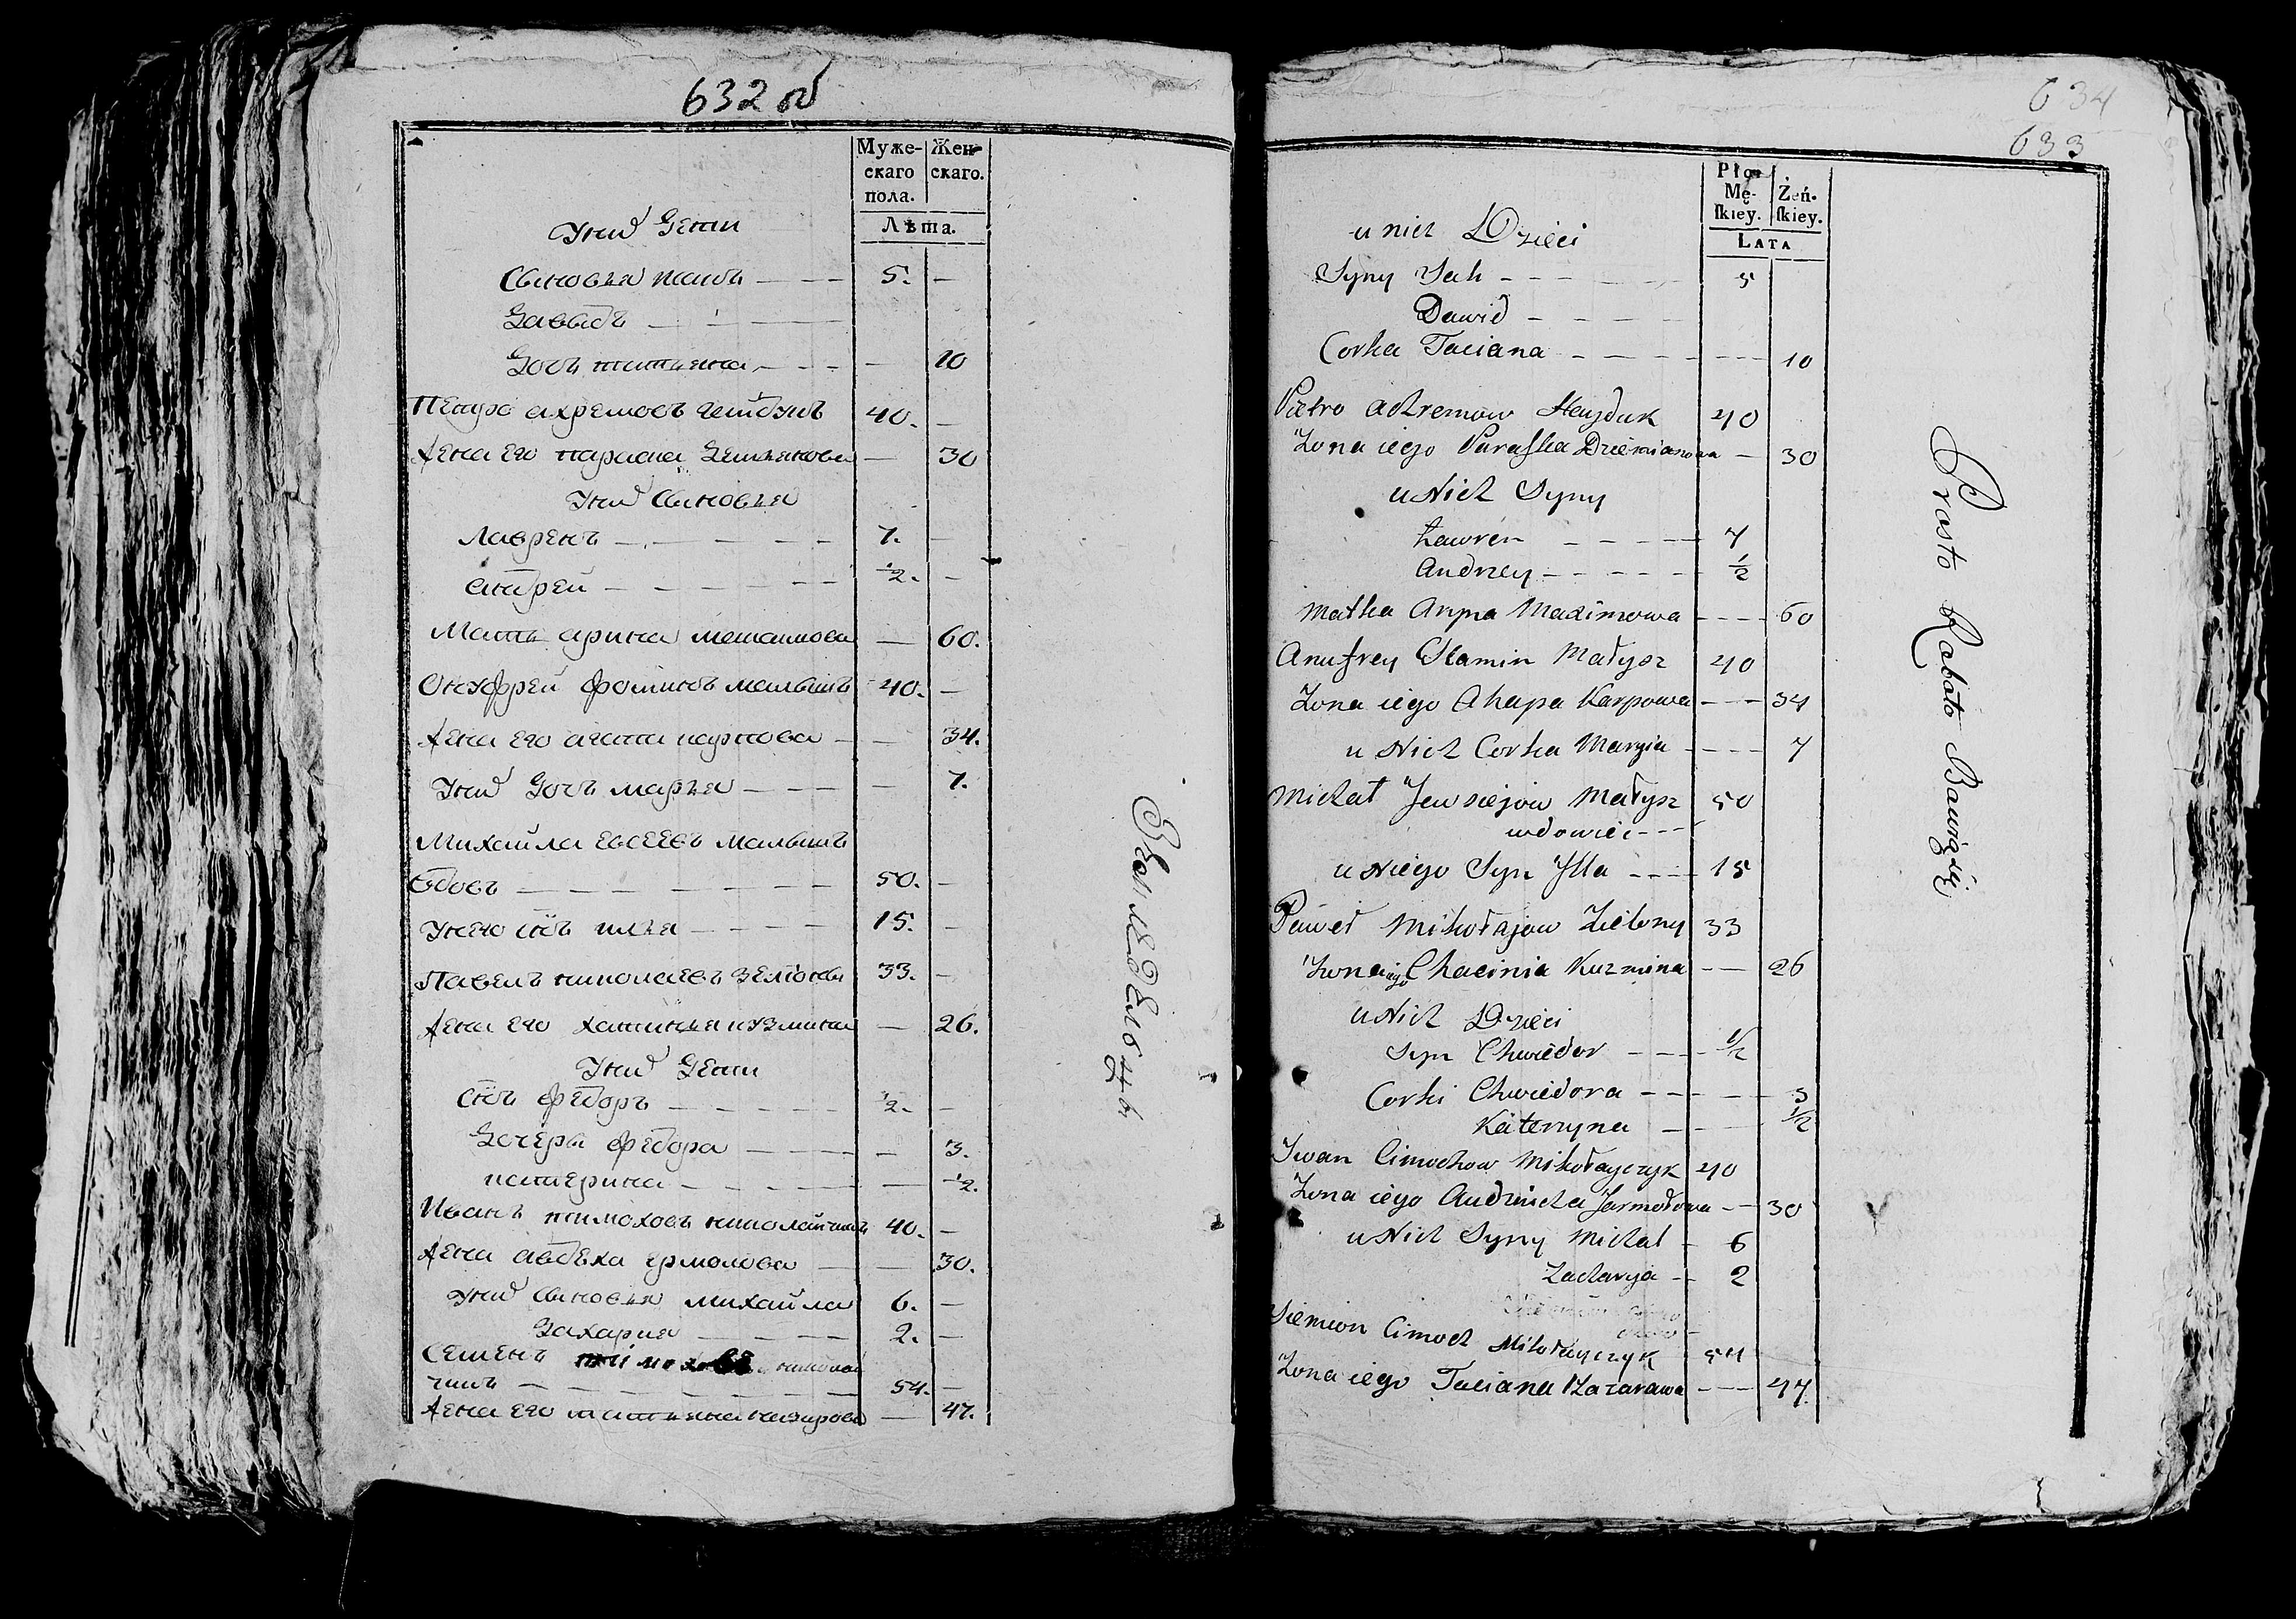 632 об
Муже-
скаго
пола.
Жен-
скаго.
Лѣта.
У них Дети
Сыновья Янъ — — — 5. —
Давыдъ — — —
Дочь татьяна — — — — 10
Петро ахремовъ гейдукъ 40. —
Жена его параска Демьянова — 30
У них Сыновья
Лавренъ — — — — — 7. —
андрей — — — — — ½. —
Мать арина — 60.
Онуфрей фоминъ малышъ 40. —
Жена его агапа карпова — — 34.
У них Дочь марья — — — — 7.
Михайла евсеевъ малышъ
вдовъ — — — — — — 50. —
У него сынъ илья — — — — 15. —
Павелъ николаевъ зелоны 33. —
Жена его хатинья кузмина — 26.
У них Дети
сынъ федоръ — — — — — ½. —
Дочери федора — — — — — 3.
катерина — — — — — ½.
Иванъ тимоховъ николайчикъ 40. —
Жена авдеха ермолова — — 30.
У них Сыновья михайла 6. —
Захария — — — 2. —
Семенъ тимохове николай
чикъ — — — — — — — 54. —
Жена его татьяна назарова — 47.
Земледельцы
634
633
Płci
Mę-
ſkiey.
Żeń-
ſkiey.
LATA
u nich Dzieci
Syny Jah — — — — — 5
Dawid — — — —
Corka Taciana — — — — — — 10
Pietro Achremow Hayduk 40
Zona iego Paraſka Dziemianowa — 30
u Nich Syny
Ławren — — — — — 7
Andrzey — — — — — ½
Matka Aryna Maximowa — — — — 60
Anufrey Małysz 40
Zona iego Ahapa Karpowa — — — 34
u Nich Corka Maryia — — — — 7
Michał Jewsiejow Małysz 50
wdowiec — — —
u Niego Syn Jlla — — — 15
Paweł Mikołajow Zielony 33
Zona iego Chacinia Kuzmina — — 26
u Nich Dzieci
Syn Chwiedor — — — — ½
Corki Chwiedora — — — — 3
Kateryna — — — ½
Jwan Cimochow Mikołayczyk 40
Zona iego Audziucha Jarmołowa — — 30
u Nich Syny Michał — 6
Zacharya — — 2
Siemion Cimoch Mikołayczyk 54
Zona iego Taciana Nazarawa — — — 47.
Prosto Roboto Bawiąsię